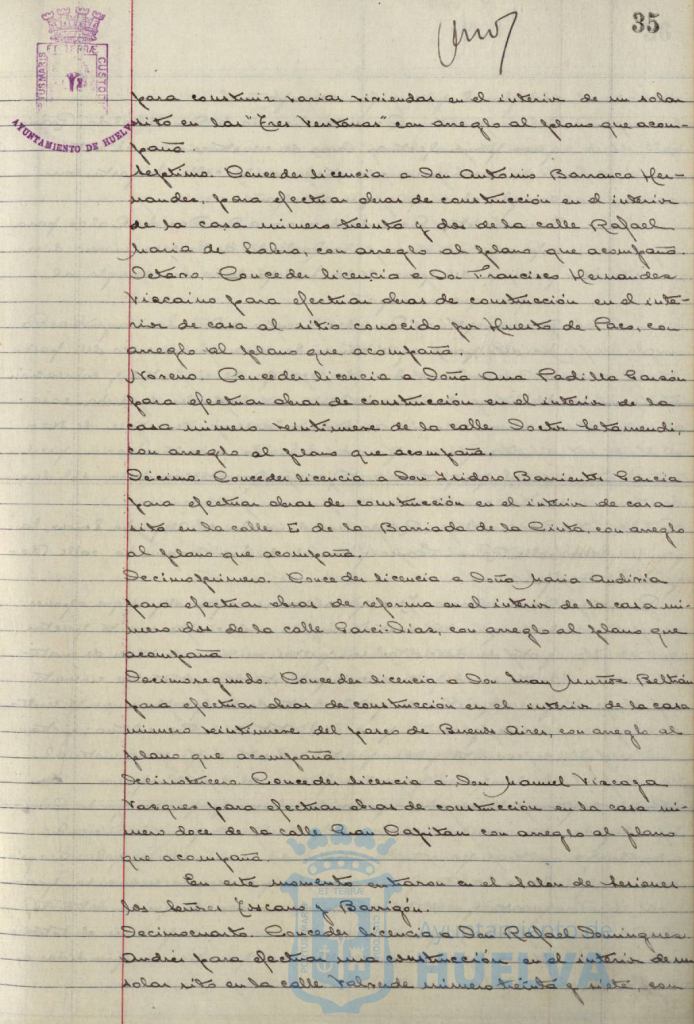 35
PORTUS MARIS ET TERRAE CUSTODIA
AYUNTAMIENTO DE HUELVA
para construir varias viviendas en el interior de un solar
sito en las "Tres Ventanas" con arreglo al plano que acom-
paña.
Septimo. Conceder licencia a Don Antonio Barranca Her-
nandez, para efectuar obras de construcción en el interior
de la casa número treinta y dos de la calle Rafael
Maria de Labra, con arreglo al plano que acompaña.
Octavo. Conceder licencia a Don Francisco Hernandez
Vizcaino para efectuar obras de construcción en el inte-
rior de casa al sitio conocido por Huerto de Paco, con
arreglo al plano que acompaña.
Noveno. Conceder licencia a Doña Ana Padilla Garzón
para efectuar obras de construcción en el interior de la
casa número veintinueve de la calle Doctor Letamendi,
con arreglo al plano que acompaña.
Décimo. Conceder licencia a Don Isidoro Barrientos Garcia
para efectuar obras de construcción en el interior de casa
sito en la calle E de la Barriada de la Cinta, con arreglo
al plano que acompaña.
Decimoprimero. Conceder licencia a Doña Maria
para efectuar obras de reforma en el interior de la casa nú-
mero dos de la calle Garci-Diaz, con arreglo al plano que
acompaña.
Decimosegundo. Conceder licencia a Don Juan Muñoz Beltrán
para efectuar obras de construcción en el interior de la casa
número veintinueve del paseo de Buenos Aires, con arreglo al
plano que acompaña.
Decimotercero. Conceder licencia a Don Manuel Vizcaya
Vazquez para efectuar obras de construcción en la casa nú-
mero doce de la calle Gran Capitan con arreglo al plano
que acompaña.
En este momento entraron en el Salon de Sesiones
los Señores Toscano y Barrigón.
Decimocuarto. Conceder licencia a Don Rafael Dominguez
para efectuar una construcción en el interior de un
solar sito en la calle Valverde número treinta y siete, con
Ayuntamiento de
HUELVA